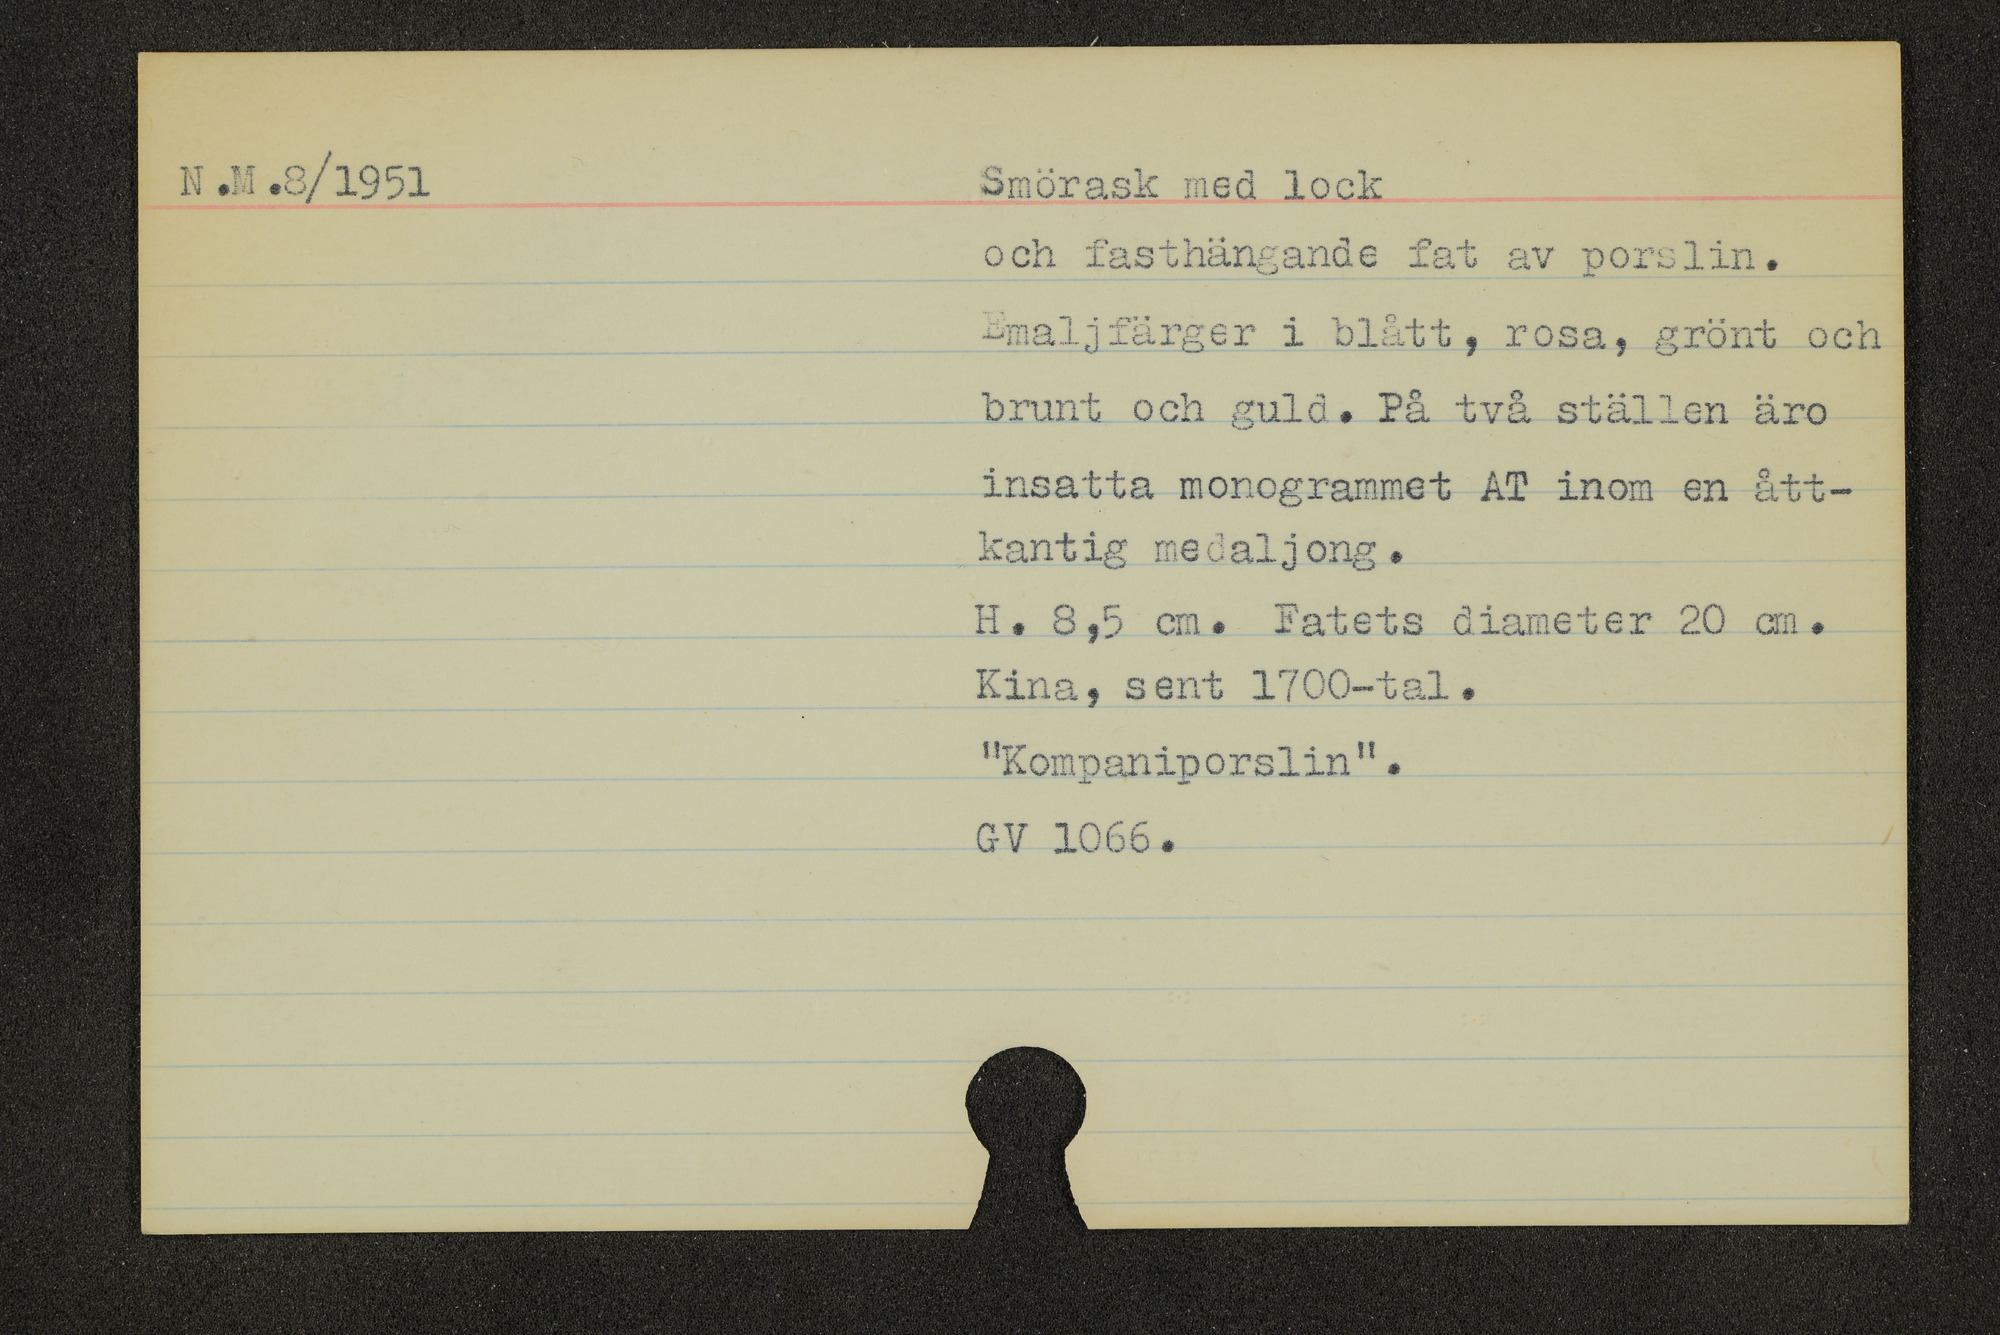 N.M.8/1951
Smörask med lock
och fasthängande fat av porslin.
Emaljfärger i blått, rosa, grönt och
brunt och guld. På två ställen äro
insatta monogrammet AT inom en ått-
kantig medaljong.
H. 8,5 cm. Fatets diameter 20 cm.
Kina, sent 1700-tal.
"Kompaniporslin".
GV 1066.